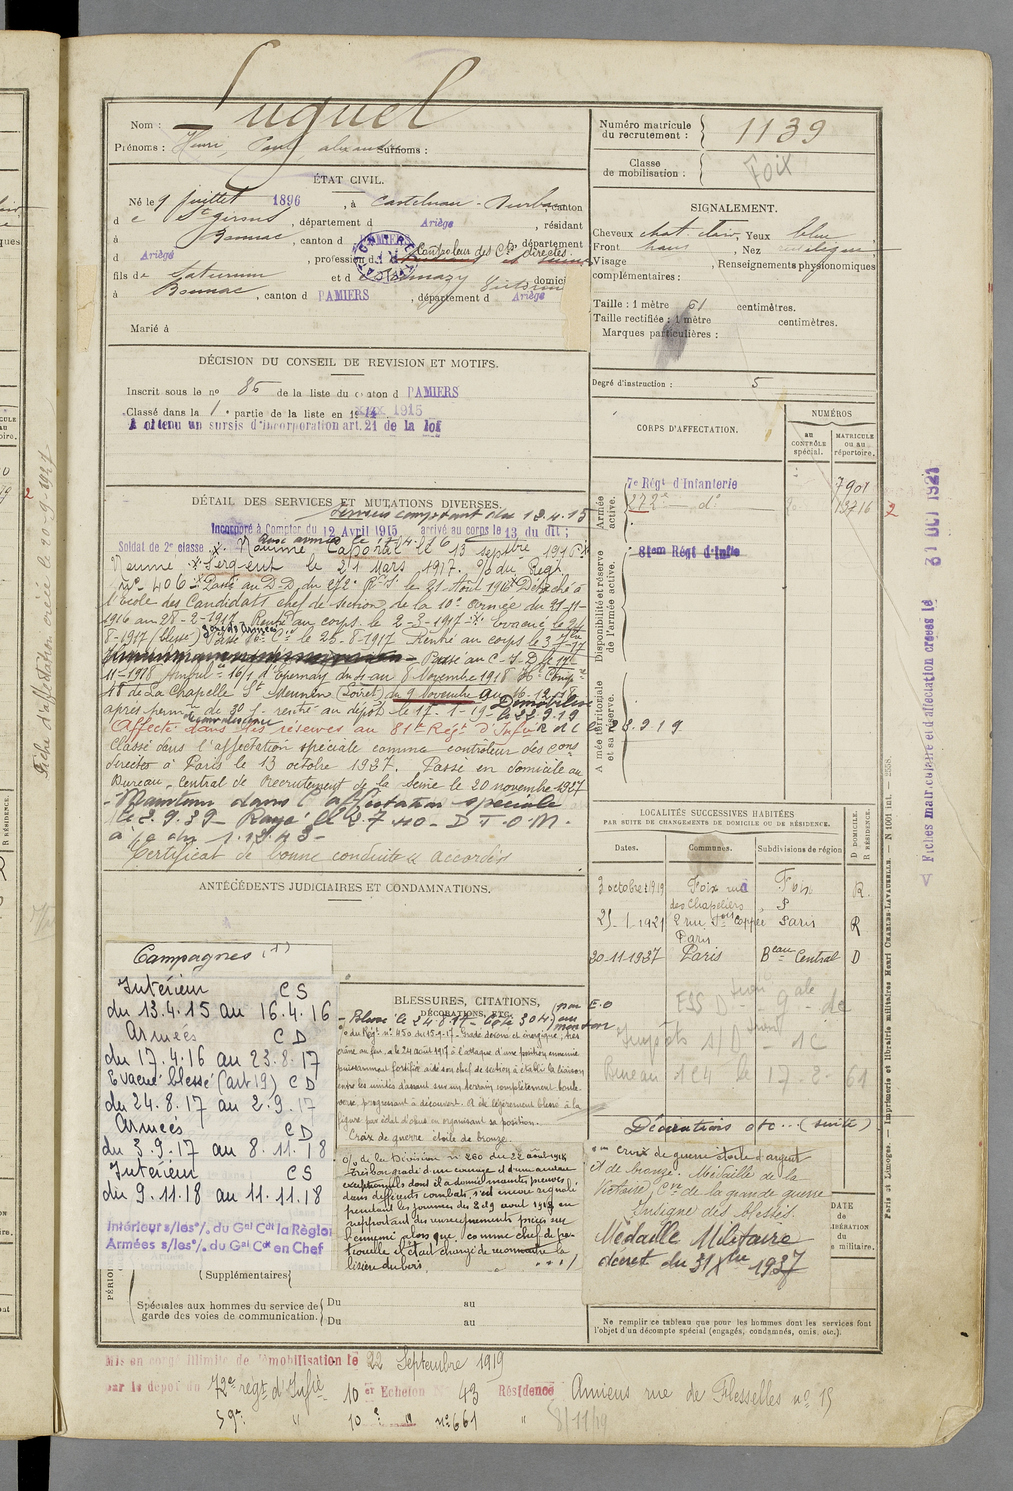 Nom : Luquel
Prénoms : Henri, Paul, alexandre Surnoms :
Numéro matricule du recrutement : 1139
Classe de mobilisation : Foix
ÉTAT CIVIL.
Né le 9 juillet 1896, à Castelnau-Durban, canton
d e St Girons, département d Ariège, résidant
à Bonnac, canton d PAMIERS, département
d Ariège, profession d Controleur des Cons directes
fils de Saturnin et d domicilié
à Bonnac, canton d PAMIERS, département d Ariège
Marié à
SIGNALEMENT.
Cheveux chat. clair, Yeux bleu
Front haut, Nez
Visage , Renseignements physionomiques
complémentaires :
Taille : 1 mètre 61 centimètres.
Taille rectifiée : 1 mètre centimètres.
Marques particulières :
Degré d'instruction : 5
DÉCISION DU CONSEIL DE REVISION ET MOTIFS.
Inscrit sous le no 86 de la liste du canton d PAMIERS
Classé dans la 1e partie de la liste en 1915
A obtenu un sursis d'incorporation art. 21 de la loi
CORPS D'AFFECTATION.
NUMÉROS
au CONTRÔLE spécial.
MATRICULE ou au répertoire.
Armée active.
7e Régt d'Infanterie 7901
272e do 13716
Disponibilité et réserve de l'armée active.
81eme Régt d'Infie
Armée territoriale et sa réserve.
DÉTAIL DES SERVICES ET MUTATIONS DIVERSES.
Services comptant du 13.4.15
Incorporé à Compter du 12 Avril 1915, arrivé au corps le 13 du dit ;
Soldat de 2e classe Aux armées le 17.4.16
Nommé Caporal le 13 septbre 1916
Nommé Sergent le 21 Mars 1917. 96 du Regt
no 406 Passé au D-D du 272e R.I. le 21 Août 1916 Détaché à
l'Ecole des Candidats chef de Section de la 10e Armée du 21-11-
1916 au 28-2-1917. Rentré au corps le 2-3-1917 Evacué le 24
8-1917 (blessé) Passé Cie le 26-8-1917 Rentré au corps le 3-7bre-17
Passé au C-I-D
11-1918 Ambulce 16/1 d'Epernay du 4 au 8 Novembre 1918 Hal Compre
48 de La Chapelle St Mesmin (Loiret) du 9 Novembre au 16-12-18
après permon de 30 j. rentré au dépôt le 17-1-19 - Démobilisé
le 22.9.19
Affecté dans les réserves au 81e Régt d'Infie R d C le 23.9.19
Classé dans l'affectation spéciale comme controleur des cons
directes à Paris le 13 octobre 1937. Passé en domicile au
Bureau Central de Recrutement de la Seine le 20 novembre 1937
- Maintenu dans l'affectation spéciale
le 2.9.39 - Rayé le 2.7.40 - D.T.O.M.
à
Certificat de bonne conduite accordé
LOCALITÉS SUCCESSIVES HABITÉES
PAR SUITE DE CHANGEMENTS DE DOMICILE OU DE RÉSIDENCE.
Dates. Communes. Subdivisions de région D DOMICILE. R RÉSIDENCE.
3 octobre 1919 Foix rue des Chapeliers Foix R.
25-1-1921 2 rue Fois Coppée Paris Paris R
20-11-1937 Paris Beau Central D
Impôts
Bureau 1C4 le 17-2-61
ANTÉCÉDENTS JUDICIAIRES ET CONDAMNATIONS.
Campagnes (1)
Intérieur CS
du 13.4.15 au 16.4.16
Armées CD
du 17.4.16 au 23.8.17
Evacué blessé (art 19) CD
du 24.8.17 au 2.9.17
Armées CD
du 3.9.17 au 8.11.18
Intérieur CS
du 9.11.18 au 11.11.18
Intérieur s/les o/. du Gal Cdt la Région
Armées s/les o/. du Gal Ct en Chef
BLESSURES, CITATIONS, DÉCORATIONS, ETC.
- Blessé le 24 8 17 - Cote 304
o/ du Régt no 450 du 15-9-17 - Gradé dévoué et énergique, très
crâne au feu, a le 24 août 1917 à l'attaque d'une position ennemie
puissamment fortifiée aidé son chef de section à établir la liaison
entre les unités d'assaut sur un terrain complètement boule-
versé, progressant à découvert. A été légèrement blessé à la
figure par éclat d'obus en organisant sa position.
Croix de guerre étoile de bronze.
o/o de la Division no 260 du 22 août 1918
Très bon gradé d'un courage et d'une audace
exceptionnels dont il a donné maintes preuves
dans différents combats, s'est encore signalé
pendant les journées des 8 et 9 août 1918 en
rapportant des renseignements précis sur
l'ennemi alors que, comme chef de pa-
trouille il était chargé de reconnaître la
lisière du bois.
Décorations etc... (suite)
Croix de guerre étoile d'argent
et de bronze. Médaille de la
Victoire, Cve de la grande guerre
Insigne des blessés.
Médaille Militaire
décret du 31 Xbre 1937
DATE de LIBÉRATION du service militaire.
(Supplémentaires)
Spéciales aux hommes du service de garde des voies de communication.
Du au
Du au
Ne remplir ce tableau que pour les hommes dont les services font
l'objet d'un décompte spécial (engagés, condamnés, omis, etc.).
Mis en congé illimité de démobilisation le 22 Septembre 1919
par le dépôt du 72e régt d'Infie 10 er Echelon No 43 Résidence Amiens rue de Flesselles no 15
59e " 10e " no 661 " 8/11/19
Paris et Limoges. — Imprimerie et librairie militaires Henri CHARLES-LAVAUZELLE.
Fiches matriculaire et d'affectation créées le 31 OCT 1921
Fiche d'affectation créée le 20-9-1927